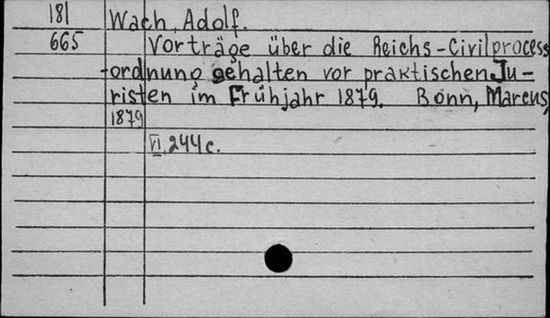 181 Wach, Adolf.
665 Vorträge über die Reichs-Civilprocess
-ordnung gehalten vor praktischen Ju-
risten im Frühjahr 1879. Bonn, Marcus,
1879
VI, 244 c.